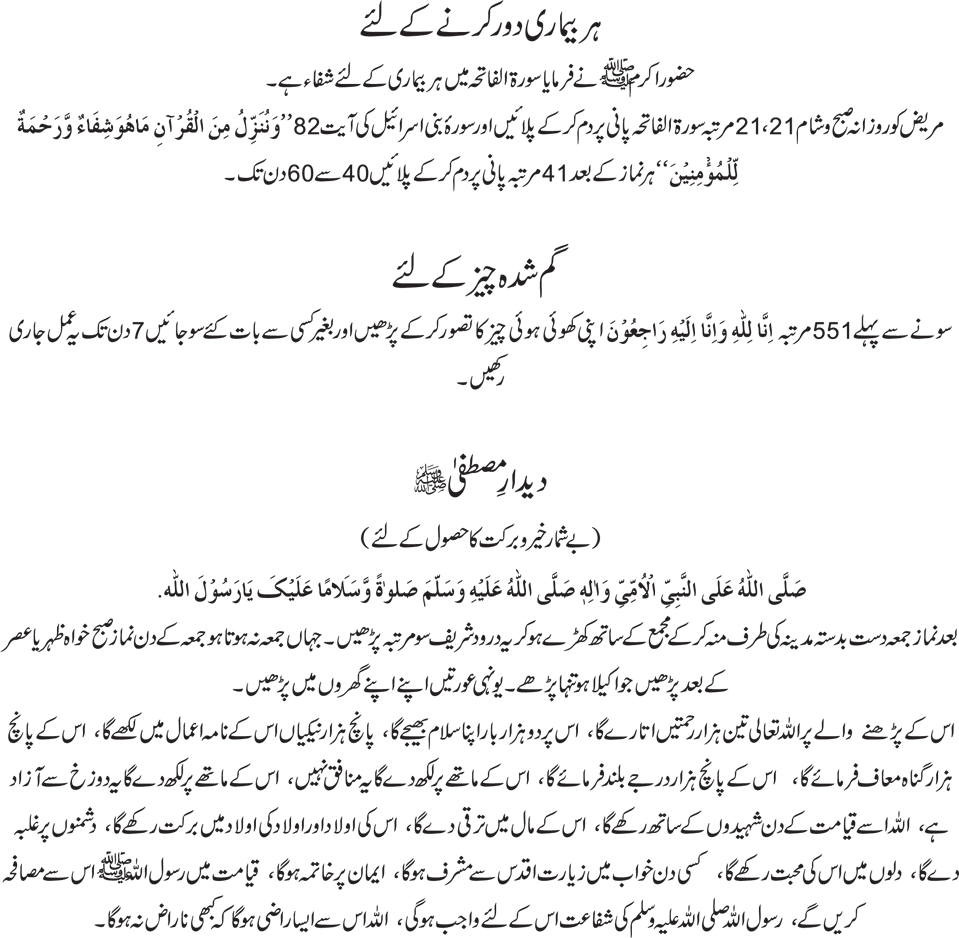 ہر بیماری دور کرنے کے لئے
حضور اکرم ﷺ نے فرمایا سورۃ الفاتحہ میں ہر بیماری کے لئے شفاء ہے۔
مریض کو روزانہ صبح و شام 21،21 مرتبہ سورۃ الفاتحہ پانی پر دم کر کے پلائیں اور سورۂ بنی اسرائیل کی آیت 82 ’’وَنُنَزِّلُ مِنَ الْقُرْآنِ مَاهُوَشِفَاءٌ وَّرَحْمَةٌ
لِّلْمُؤْمِنِيْنَ‘‘ ہر نماز کے بعد 41 مرتبہ پانی پر دم کر کے پلائیں 40 سے 60 دن تک۔
گم شدہ چیز کے لئے
سونے سے پہلے 551 مرتبہ اِنَّا لِلّٰهِ وَاِنَّا اِلَيْهِ رَاجِعُوْنَ اپنی کھوئی ہوئی چیز کا تصور کر کے پڑھیں اور بغیر کسی سے بات کئے سو جائیں 7 دن تک یہ عمل جاری
رکھیں۔
دیدارِ مصطفیٰ ﷺ
(بے شمار خیر و برکت کا حصول کے لئے)
صَلَّى اللّٰهُ عَلَى النَّبِيِّ الْاُمِّيِّ وَاٰلِهٖ صَلَّى اللّٰهُ عَلَيْهِ وَسَلَّمَ صَلٰوةً وَّسَلَامًا عَلَيْكَ يَارَسُوْلَ اللّٰه.
بعد نماز جمعہ دست بدستہ مدینہ کی طرف منہ کر کے مجمع کے ساتھ کھڑے ہو کر یہ درود شریف سو مرتبہ پڑھیں۔ جہاں جمعہ نہ ہوتا ہو جمعہ کے دن نماز صبح خواہ ظہر یا عصر
کے بعد پڑھیں جو اکیلا ہو تنہا پڑھے۔ یونہی عورتیں اپنے اپنے گھروں میں پڑھیں۔
اس کے پڑھنے والے پر اللہ تعالی تین ہزار رحمتیں اتارے گا، اس پر دو ہزار بار اپنا سلام بھیجے گا، پانچ ہزار نیکیاں اس کے نامہ اعمال میں لکھے گا، اس کے پانچ
ہزار گناہ معاف فرمائے گا، اس کے پانچ ہزار درجے بلند فرمائے گا، اس کے ماتھے پر لکھ دے گا یہ منافق نہیں، اس کے ماتھے پر لکھ دے گا یہ دوزخ سے آزاد
ہے، اللہ اسے قیامت کے دن شہیدوں کے ساتھ رکھے گا، اس کے مال میں ترقی دے گا، اس کی اولاد اور اولاد کی اولاد میں برکت رکھے گا، دشمنوں پر غلبہ
دے گا، دلوں میں اس کی محبت رکھے گا، کسی دن خواب میں زیارت اقدس سے مشرف ہوگا، ایمان پر خاتمہ ہوگا، قیامت میں رسول اللہ ﷺ اس سے مصافحہ
کریں گے، رسول اللہ صلی اللہ علیہ وسلم کی شفاعت اس کے لئے واجب ہوگی، اللہ اس سے ایسا راضی ہوگا کہ کبھی ناراض نہ ہوگا۔